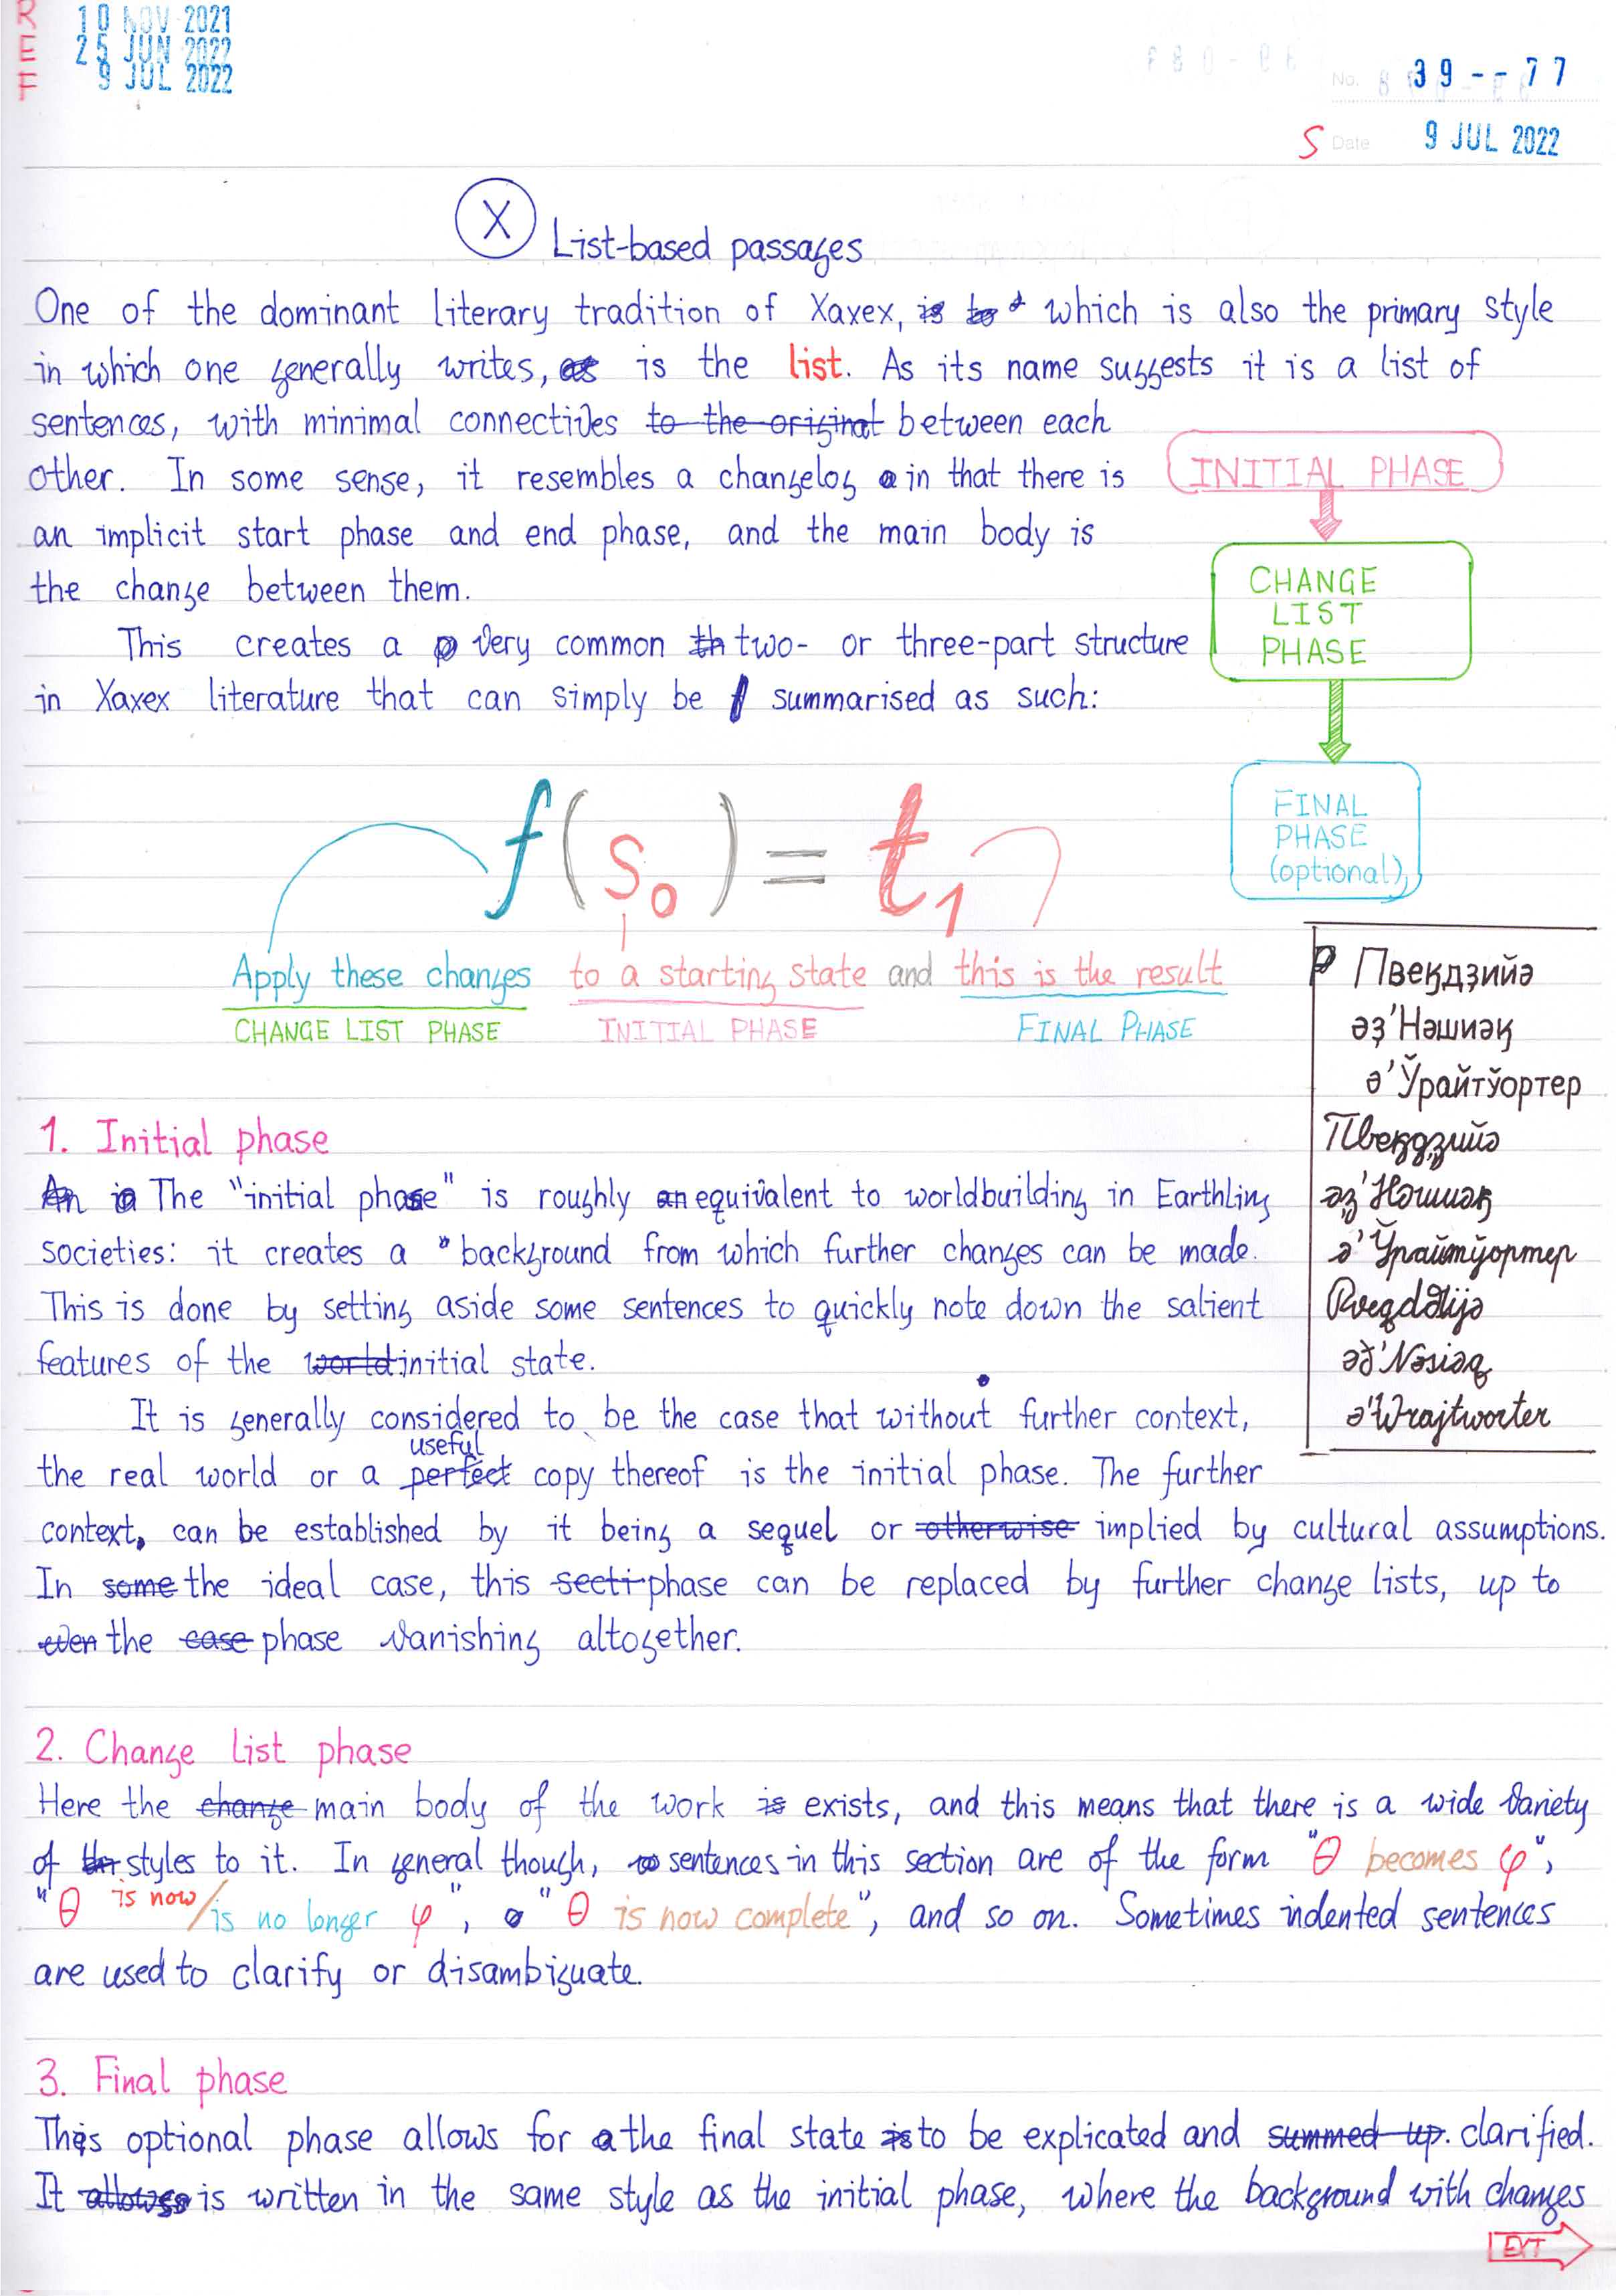 REF
10 NOV 2021
25 JUN 2022
9 JUL 2022
No. 39--77
S Date 9 JUL 2022
X List-based passages
One of the dominant literary tradition of Xaxex, is to which is also the primary style
in which one generally writes, as is the list. As its name suggests it is a list of
sentences, with minimal connectives to the original between each
other. In some sense, it resembles a changelog in that there is
an implicit start phase and end phase, and the main body is
the change between them.
This creates a very common th two- or three-part structure
in Xaxex literature that can simply be summarised as such:
INITIAL PHASE
CHANGE
LIST
PHASE
FINAL
PHASE
(optional)
f(s₀) = t₁
Apply these changes to a starting state and this is the result
CHANGE LIST PHASE INITIAL PHASE FINAL PHASE
Пвеӄдҙийә
әҙ'Нәшиәӄ
ә'Ўрайтўортер
Пвеӄдҙийә
әҙ'Нәшиәӄ
ә'Ўрайтўортер
ә'Wrajtworter
1. Initial phase
An The "initial phase" is roughly an equivalent to worldbuilding in Earthling
societies: it creates a background from which further changes can be made.
This is done by setting aside some sentences to quickly note down the salient
features of the world initial state.
It is generally considered to be the case that without further context,
useful
the real world or a perfect copy thereof is the initial phase. The further
context, can be established by it being a sequel or otherwise implied by cultural assumptions.
In some the ideal case, this secti phase can be replaced by further change lists, up to
even the case phase vanishing altogether.
2. Change list phase
Here the change main body of the work is exists, and this means that there is a wide variety
of styles to it. In general though, sentences in this section are of the form "θ becomes φ",
"θ is now/is no longer φ", "θ is now complete", and so on. Sometimes indented sentences
are used to clarify or disambiguate.
3. Final phase
This optional phase allows for a the final state is to be explicated and summed up. clarified.
It allows is written in the same style as the initial phase, where the background with changes
EXT